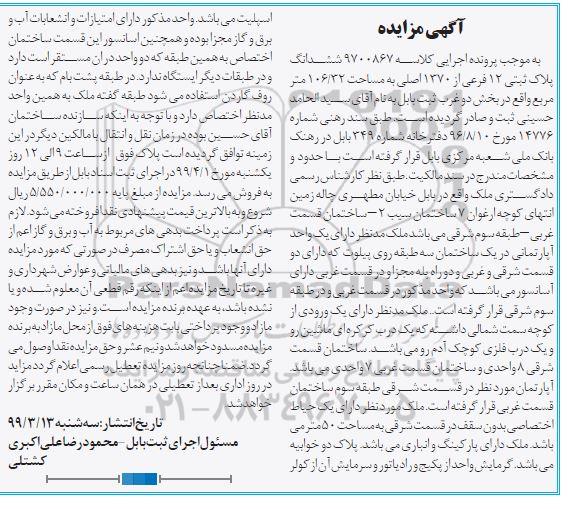 آگهی مزایده
به موجب پرونده اجرایی کلاسه ۹۷۰۰۸۶۷ ششدانگ
پلاک ثبتی ۱۲ فرعی از ۱۳۷۰ اصلی به مساحت ۱۰۶/۳۲ متر
مربع واقع در بخش دو غرب ثبت بابل به نام آقای سید الحامد
حسینی ثبت و صادر گردیده است. طبق سند رهنی شماره
۱۴۷۷۶ مورخ ۹۶/۸/۱۰ دفترخانه شماره ۳۴۹ بابل در رهنک
بانک ملی شعبه مرکزی بابل قرار گرفته است با حدود و
مشخصات مندرج در سند مالکیت. طبق نظر کارشناس رسمی
دادگستری ملک واقع در بابل خیابان مطهری چاله زمین
انتهای کوچه ارغوان ۷ ساختمان سیب ۲ – ساختمان قسمت
غربی – طبقه سوم شرقی می باشد ملک مدنظر دارای یک واحد
آپارتمانی در یک ساختمان سه طبقه روی پیلوت که دارای دو
قسمت شرقی و غربی و دو راه پله مجزا و در قسمت غربی دارای
آسانسور می باشد که واحد مذکور در قسمت غربی و در طبقه
سوم شرقی قرار گرفته است. ملک مدنظر دارای یک ورودی از
کوچه سمت شمالی داشته که یک درب کرکره ای ماشین رو
و یک درب فلزی کوچک آدم رو می باشد. ساختمان قسمت
شرقی ۸ واحدی و ساختمان قسمت غربی ۷ واحدی می باشد.
آپارتمان مورد نظر در قسمت شرقی طبقه سوم ساختمان
قسمت غربی قرار گرفته است. ملک مورد نظر دارای یک حیاط
اختصاصی بدون سقف در قسمت شرقی به مساحت ۵۰ متر می
باشد. ملک دارای پارکینگ و انباری می باشد. پلاک دو خوابیه
می باشد. گرمایش واحد از پکیج و رادیاتور و سرمایش آن از کولر
اسپلیت می باشد. واحد مذکور دارای امتیازات و انشعابات آب و
برق و گاز مجزا بوده و همچنین اسانسور این قسمت ساختمان
اختصاص به همین طبقه که دو واحد در ان مستقر است دارد
و در طبقات دیگر ایستگاه ندارد. در طبقه پشت بام که به عنوان
روف گاردن استفاده می شود طبقه گفته ملک به همین واحد
مدنظر اختصاص دارد و با توجه به اینکه سازنده ساختمان
آقای حسین بوده در زمان نقل و انتقال با مالکین دیگر در این
زمینه توافق گردیده است پلاک فوق از ساعت ۹ الی ۱۲ روز
یکشنبه مورخ ۹۹/۴/۱ در اجرای ثبت اسناد بابل از طریق مزایده
به فروش می رسد. مزایده از مبلغ پایه ۵/۵۵۰/۰۰۰/۰۰۰ ریال
شروع و به بالاترین قیمت پیشنهادی نقدا فروخته می شود. لازم
به ذکر است پرداخت بدهی های مربوط به آب و برق و گاز اعم از
حق انشعاب و یا حق اشتراک مصرف در صورتی که مورد مزایده
دارای آنها باشد و نیز بدهی های مالیاتی و عوارض شهرداری و
غیره تا تاریخ مزایده اعم از اینکه رقم قطعی آن معلوم شده و یا
نشده باشد، به عهده برنده مزایده است و نیز در صورت وجود
مازاد و وجوه پرداختی بابت هزینه های فوق از محل مازاد به برنده
مزایده مسدود خواهد شد و نیم عشر و حق مزایده نقدا وصول می
گردد. ضمنا چنانچه روز مزایده تعطیل رسمی اعلام گردد مزاید
در روز اداری بعد از تعطیلی در همان ساعت و مکان مقرر برگزار
خواهد شد.
تاریخ انتشار: سه شنبه ۹۹/۳/۱۳
مسئول اجرای ثبت بابل – محمود رضا علی اکبری
کشتلی
۰۲۱-۸۸۳۴۹۶۷۰